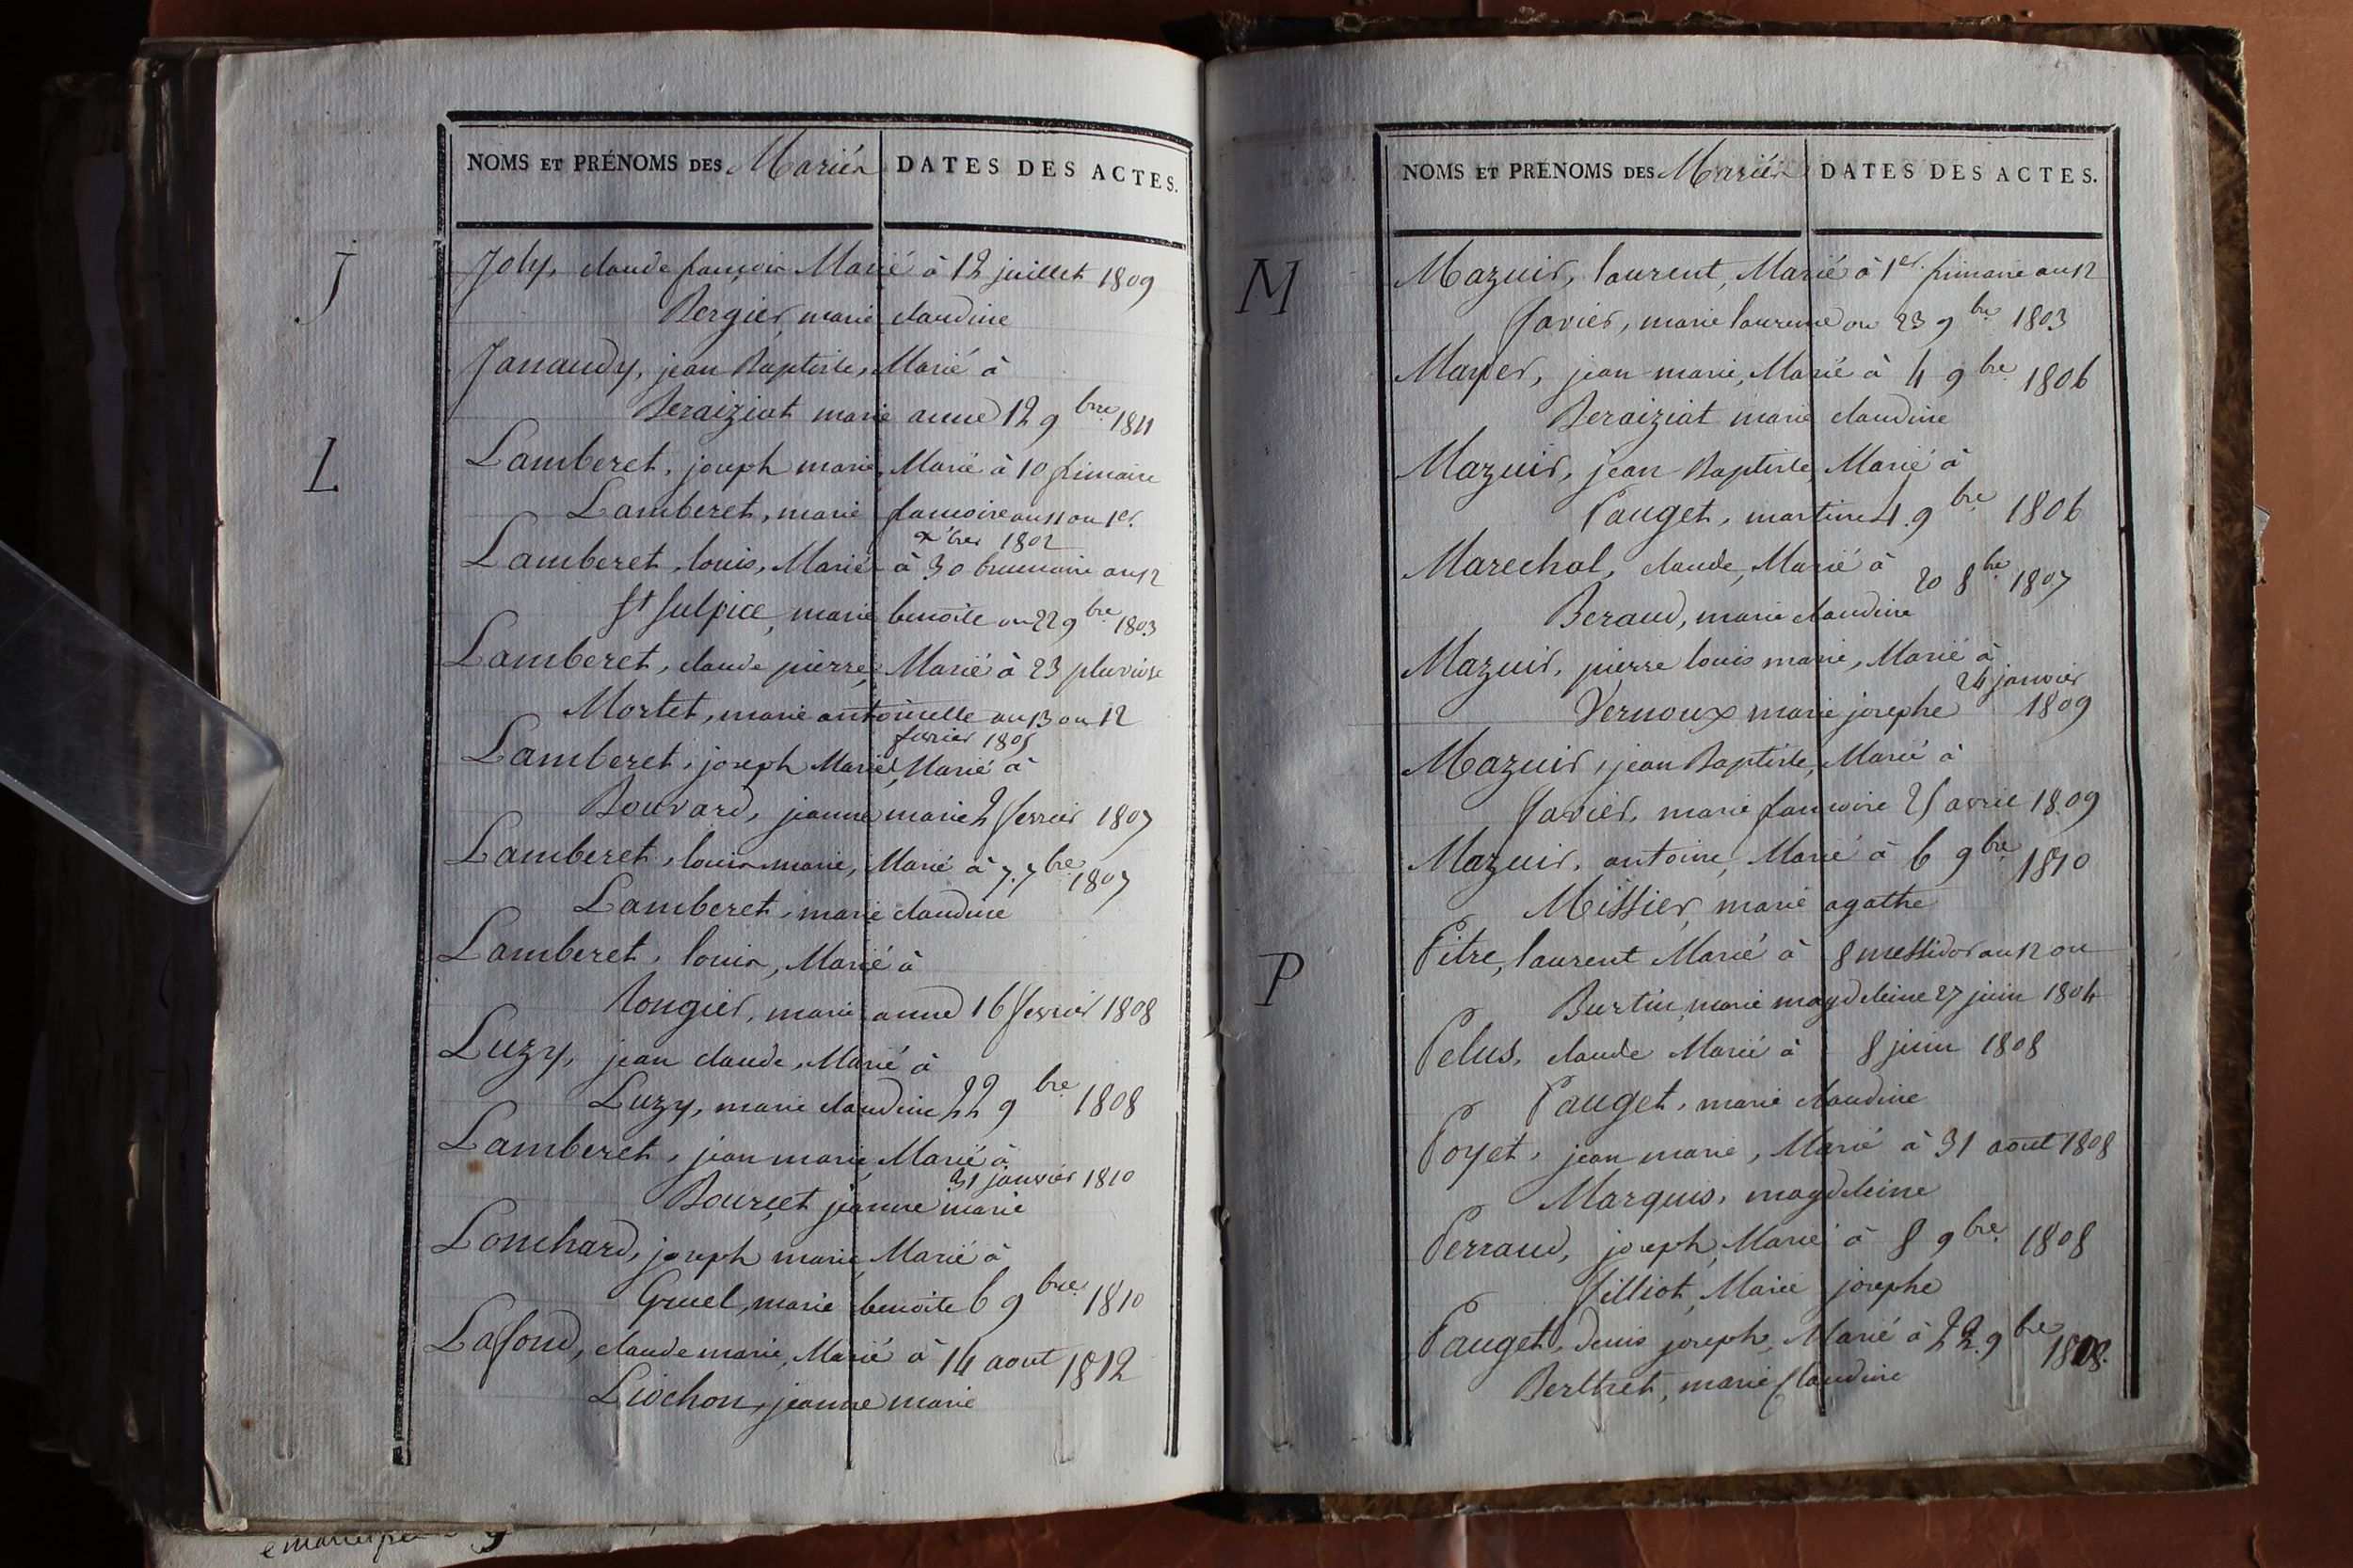 NOMS ET PRÉNOMS DES Mariés DATES DES ACTES.
J
Joly, claude françois Marié à 12 juillet 1809
Bergier, marie claudine
Janaudy, jean Baptiste, Marié à
Beraiziat marie anne 12 9bre 1811
L
Lamberet, joseph marie, Marié à 10 frimaire
Lamberet, marie francoise an 11 ou 1er.
xbre 1802
Lamberet, louis, Marié à 30 brumaire an 12
St Sulpice, marie benoite ou 22 9bre 1803
Lamberet, claude pierre, Marié à 23 pluviose
Mortet, marie antoinette an 13 ou 12
fevrier 1805
Lamberet, joseph Marie, Marié à
Bouvard, jeanne marie 2 fevrier 1807
Lamberet, louis marie, Marié à 7. 7bre 1807
Lamberet, marie claudine
Lamberet, louis, Marié à
Rongier, marie anne 16 fevrier 1808
Luzy, jean claude, Marié à
Luzy, marie claudine 22 9bre 1808
Lamberet, jean marie, Marié à
31 janvier 1810
Bourcet jeanne marie
Lonchard, joseph marie, Marié à
Gruel, marie benoite 6 9bre 1810
Lafond, claude marie, Marié à 14 aout 1812
Liochon, jeanne marie
NOMS ET PRÉNOMS DES Mariés DATES DES ACTES.
M
Mazuir, laurent, Marié à 1er. frimaire an 12
Favier, marie laurence ou 23 9bre 1803
Mayer, jean marie, Marié à 4 9bre 1806
Beraiziat marie claudine
Mazuir, jean Baptiste, Marié à
Pauget, martine 4. 9bre 1806
Marechal, claude, Marié à 20 8bre 1807
Beraud, marie claudine
Mazuir, pierre louis marie, Marié à
24 janvier
Vernoux marie josephe 1809
Mazuir, jean Baptiste, Marié à
Favier, marie francoise 25 avril 1809
Mazuir, antoine, Marié à 6 9bre 1810
Missier, marie agathe
P
Pitre, laurent Marié à 8 messidor an 12 ou
Burtin, marie magdeleine 27 juin 1804
Pelus, claude Marié à 8 juin 1808
Pauget, marie claudine
Poyet, jean marie, Marié à 31 aout 1808
Marquis, magdeleine
Perraud, joseph, Marié à 8 9bre 1808
Filliot, Marie josephe
Pauget, denis joseph, Marié à 22. 9bre 1808.
Berthet, marie Claudine